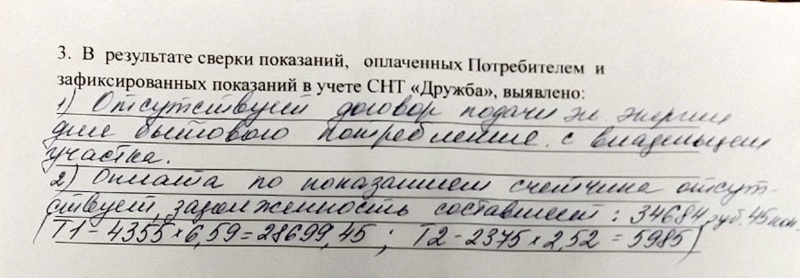 3. В результате сверки показаний, оплаченных Потребителем и
зафиксированных показаний в учете СНТ «Дружба», выявлено:
1) Отсутствует договор подачи эл. энергии
для бытового потребление с владельцем
участка.
2) Оплата по показаниям счетчика отсут-
ствует, задолженность составляет: 34684 руб. 45 коп.
(Т1 – 4355 × 6,59 = 28699,45 ; Т2 – 2375 × 2,52 = 5985)